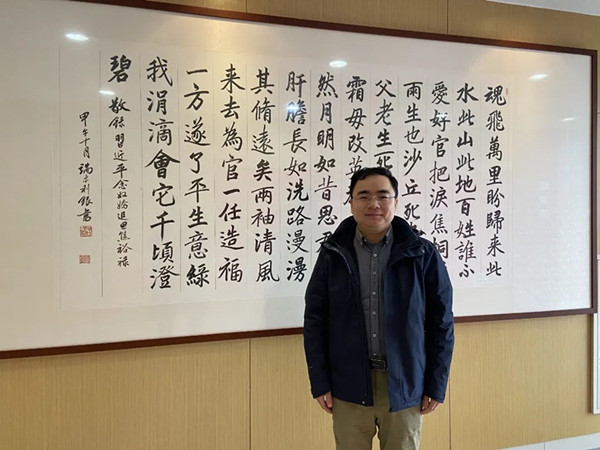 魂飛萬里盼歸来此
水此山此地百姓誰不
愛好官把淚焦桐
雨生也沙丘死
父老生死
霜毋改
然月明如昔思君
肝膽長如洗路漫漫
其脩遠矣兩袖清風
来去為官一任造福
一方遂了平生意綠
我涓滴會它千頃澄
碧
敬錄習近平念奴嬌追思焦裕祿
甲午十月